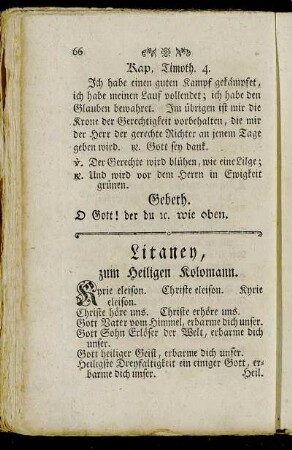 66
Kap. Timoth. 4.
Ich habe einen guten Kampf gekämpfet,
ich habe meinen Lauf vollendet; ich habe den
Glauben bewahret. Im übrigen ist mir die
Krone der Gerechtigkeit vorbehalten, die mir
der Herr der gerechte Richter an jenem Tage
geben wird. ℟. Gott sey dank.
℣. Der Gerechte wird blühen, wie eine Lilge;
℟. Und wird vor dem Herrn in Ewigkeit
grünen.
Gebeth.
O Gott! der du ꝛc. wie oben.
Litaney,
zum Heiligen Kolomann.
Kyrie eleison. Christe eleison. Kyrie
eleison.
Christe höre uns. Christe erhöre uns.
Gott Vater vom Himmel, erbarme dich unser.
Gott Sohn Erlöser der Welt, erbarme dich
unser.
Gott heiliger Geist, erbarme dich unser.
Heiligste Dreyfaltigkeit ein einiger Gott, er-
barme dich unser. Heil.